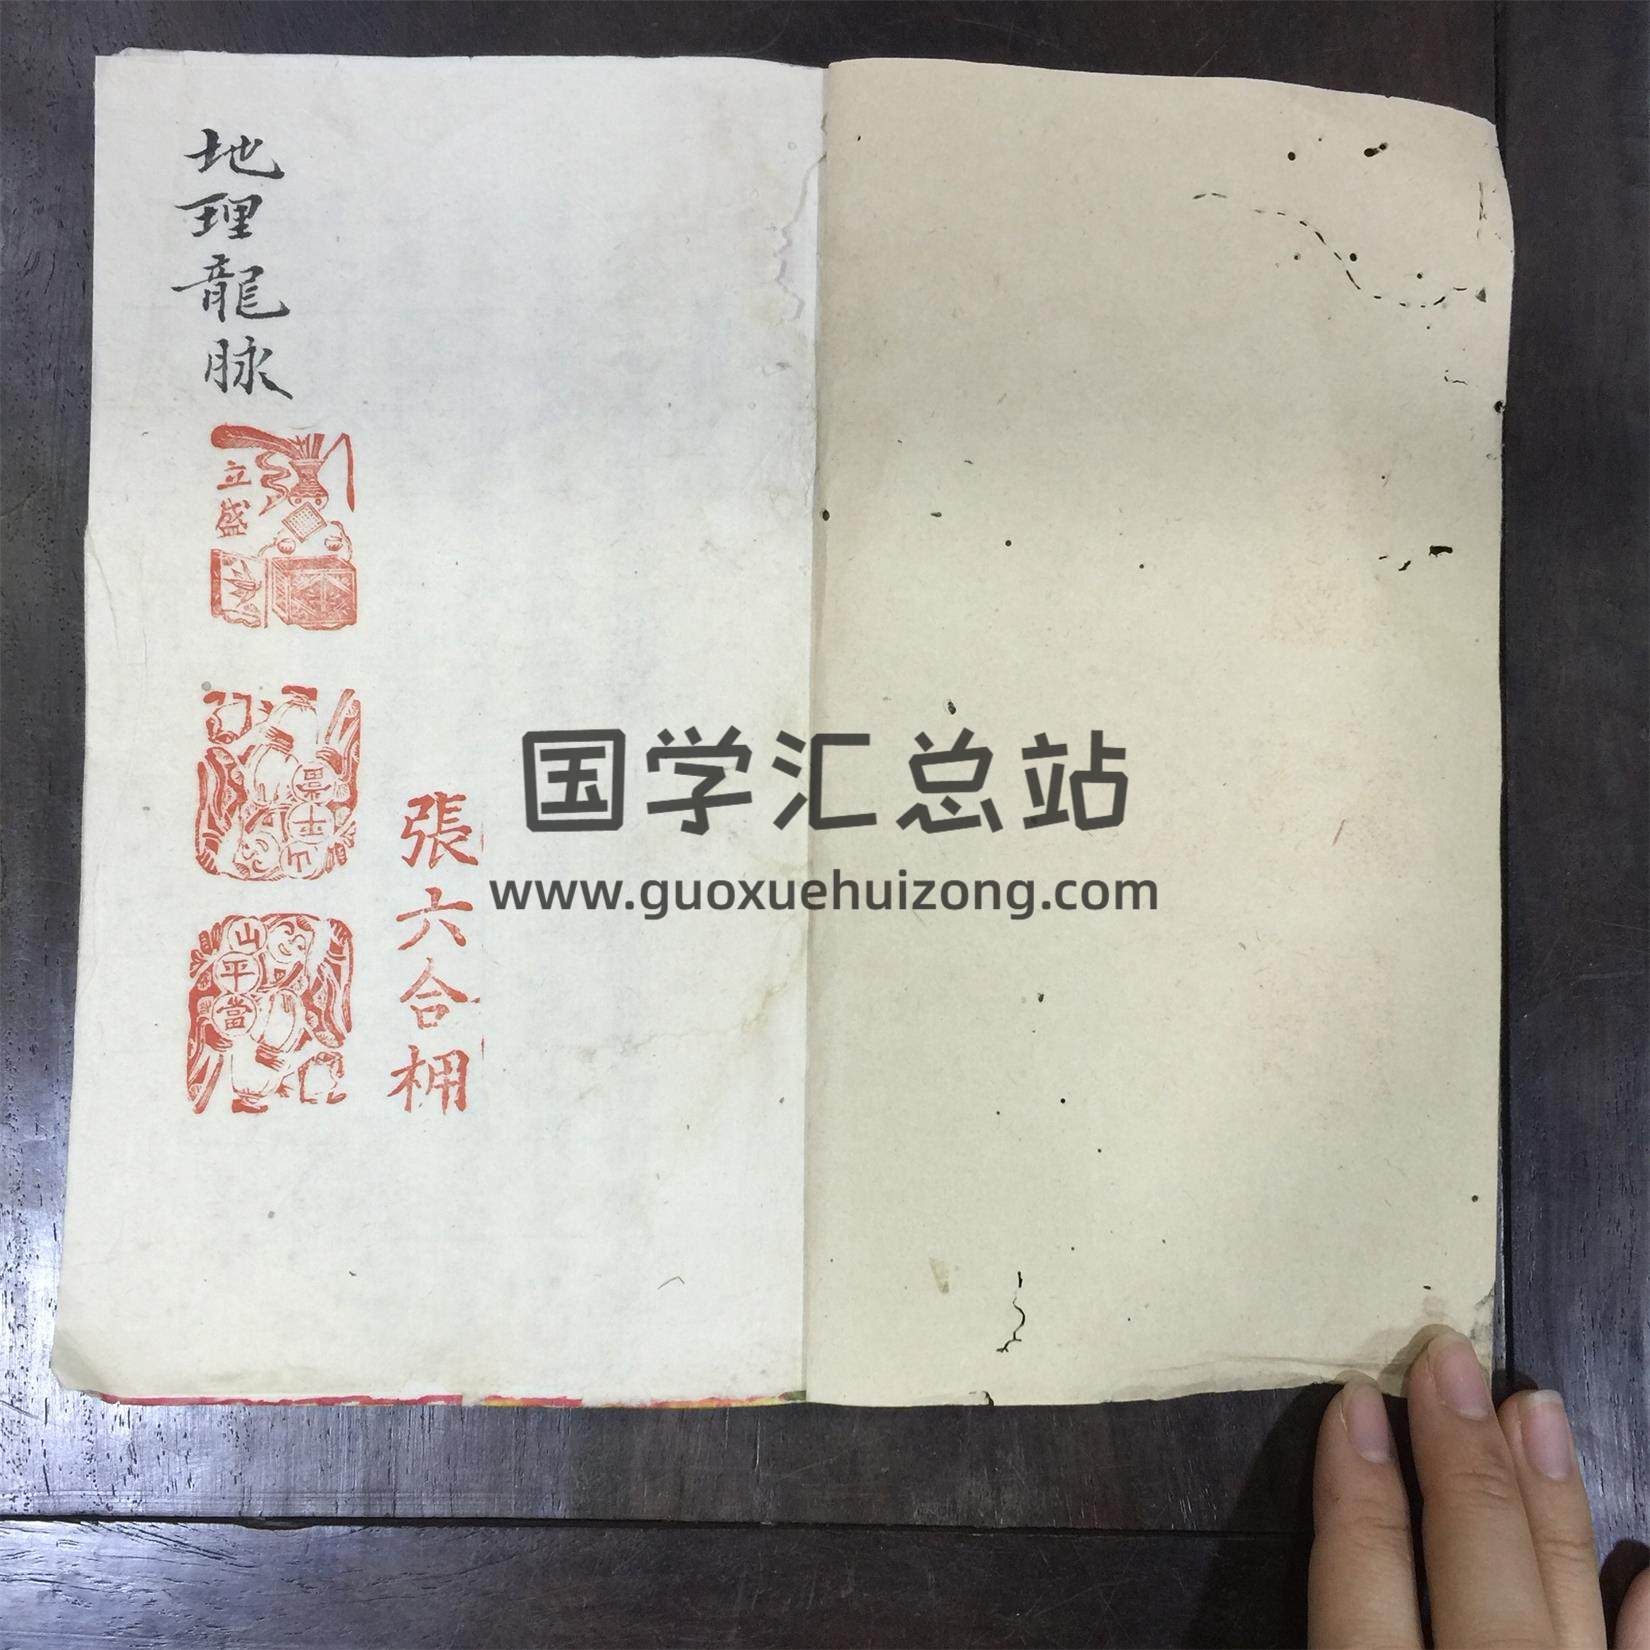 地理龍脉
立盛
山平當
張六合
国学汇总站
www.guoxuehuizong.com